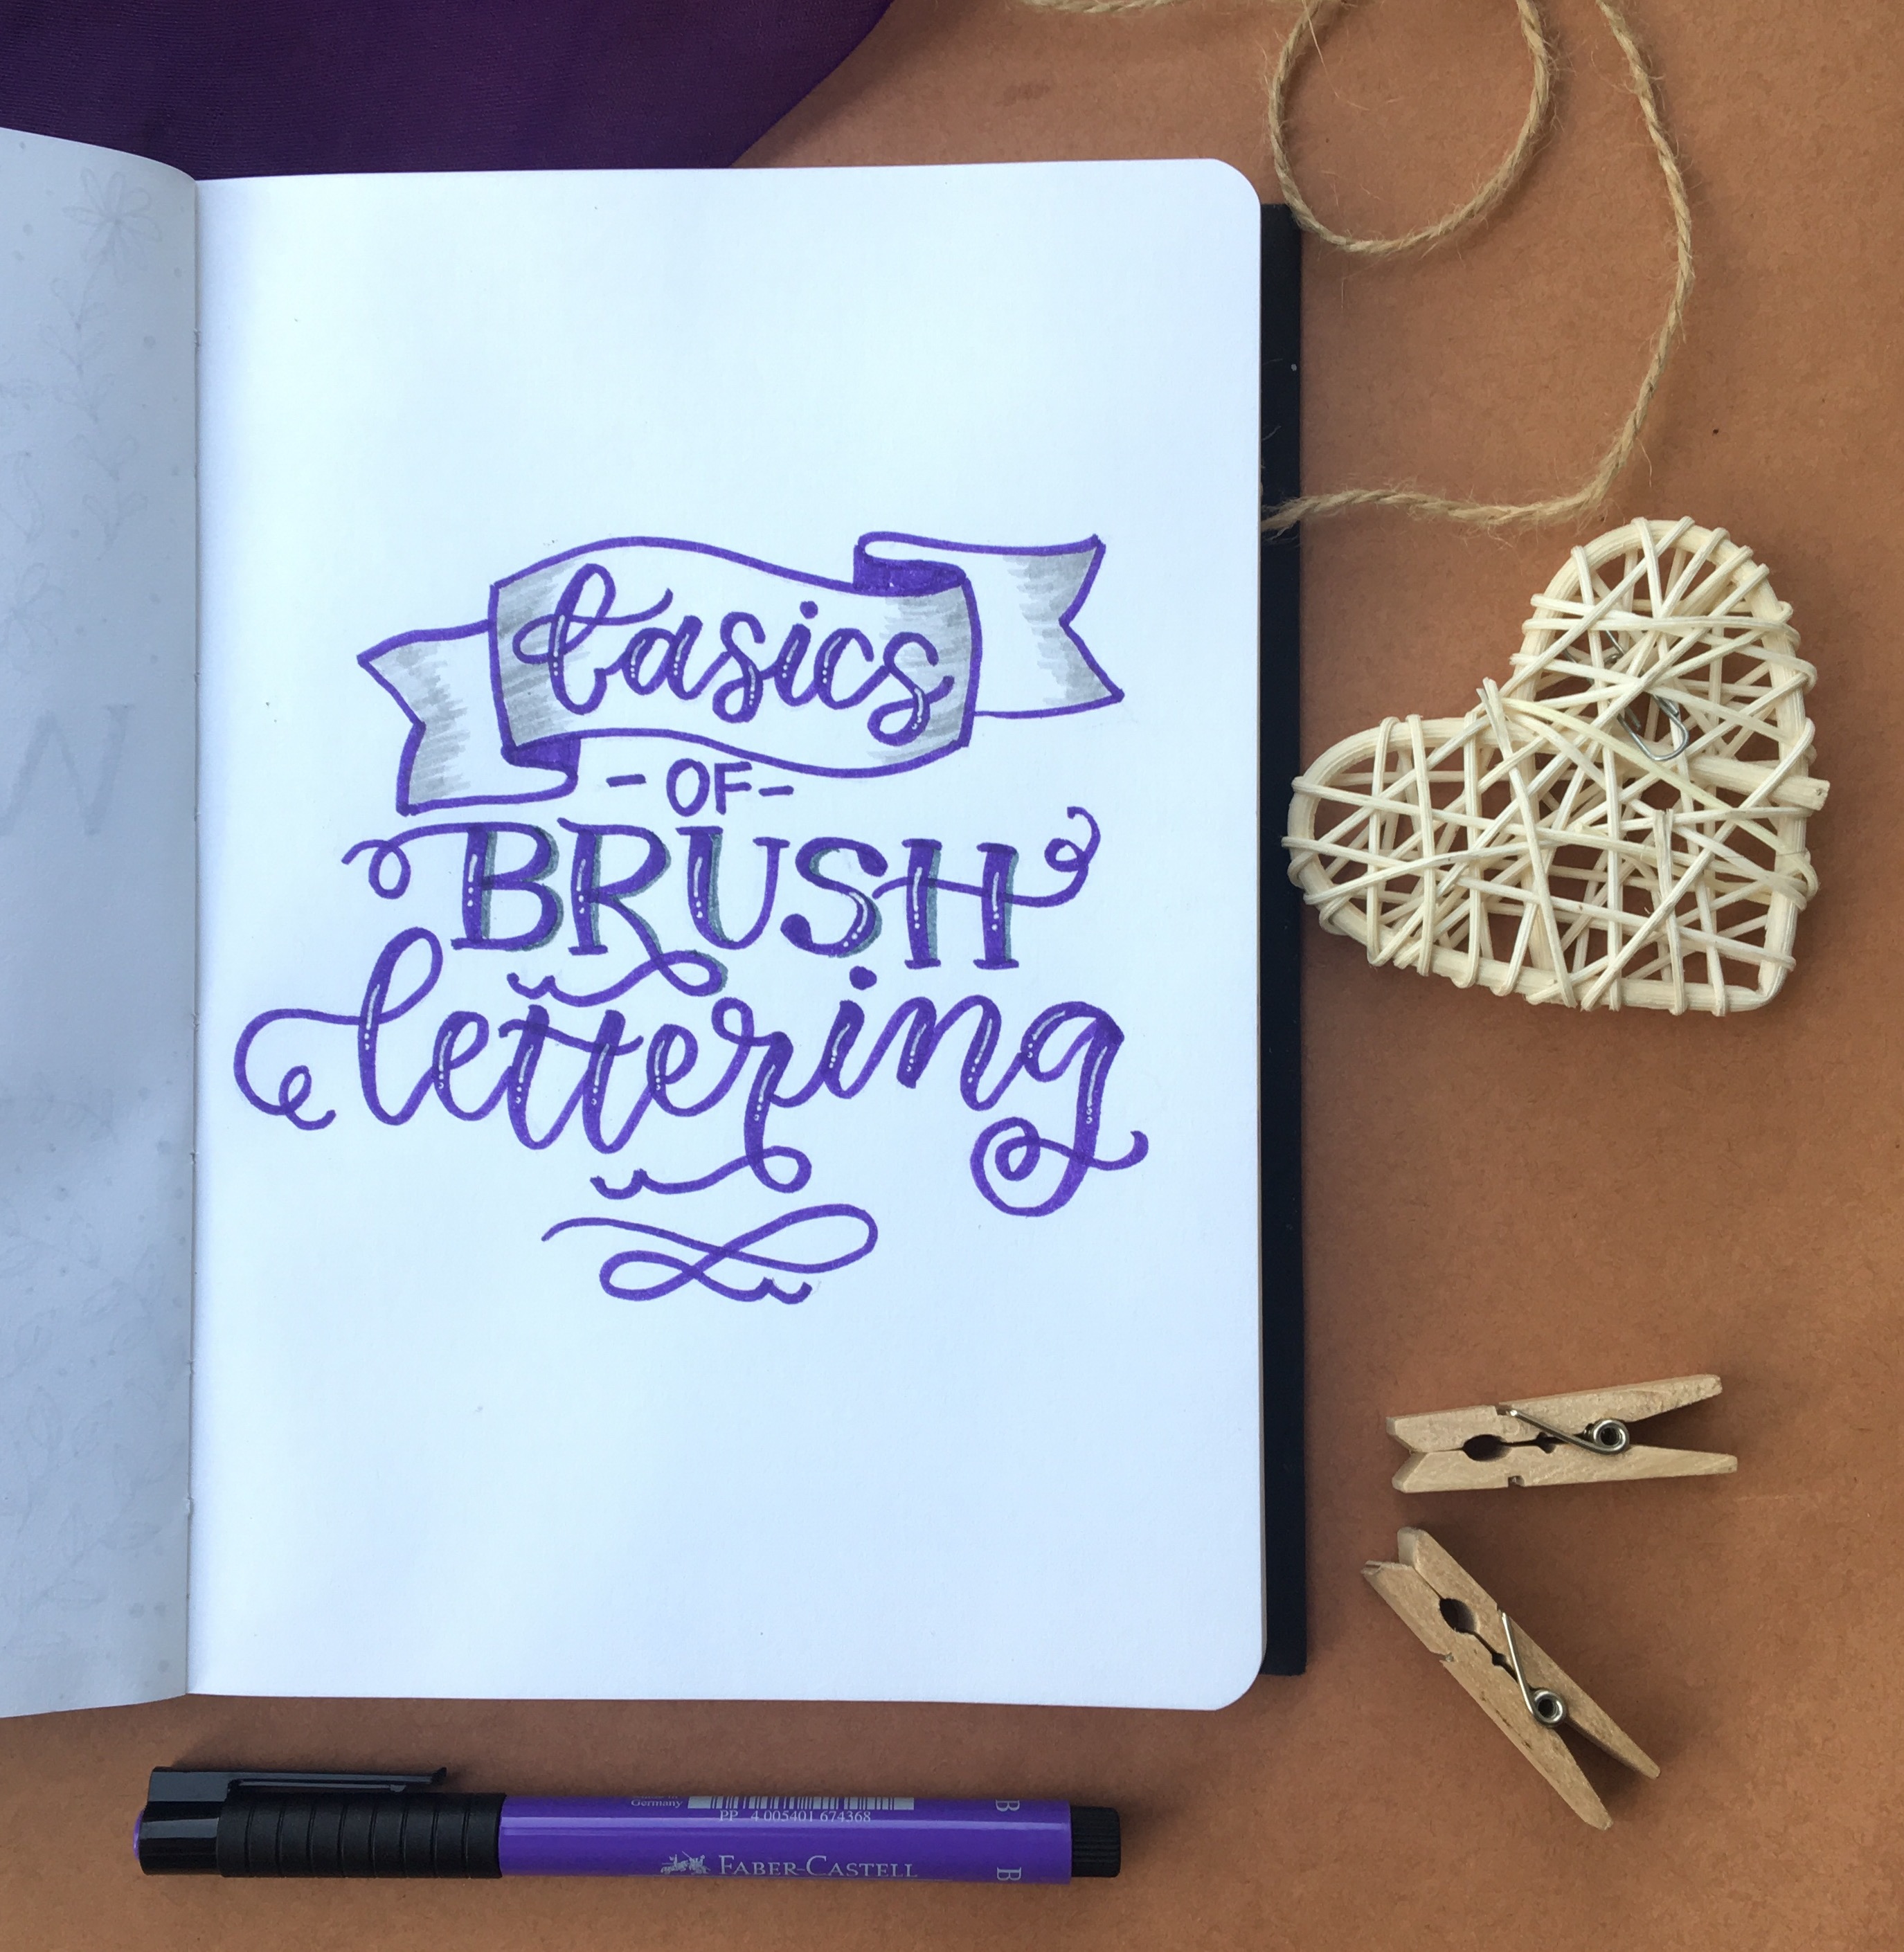 basics
- OF -
BRUSH
lettering
Germany
PP 4 005401 674368
B
FABER-CASTELL
B